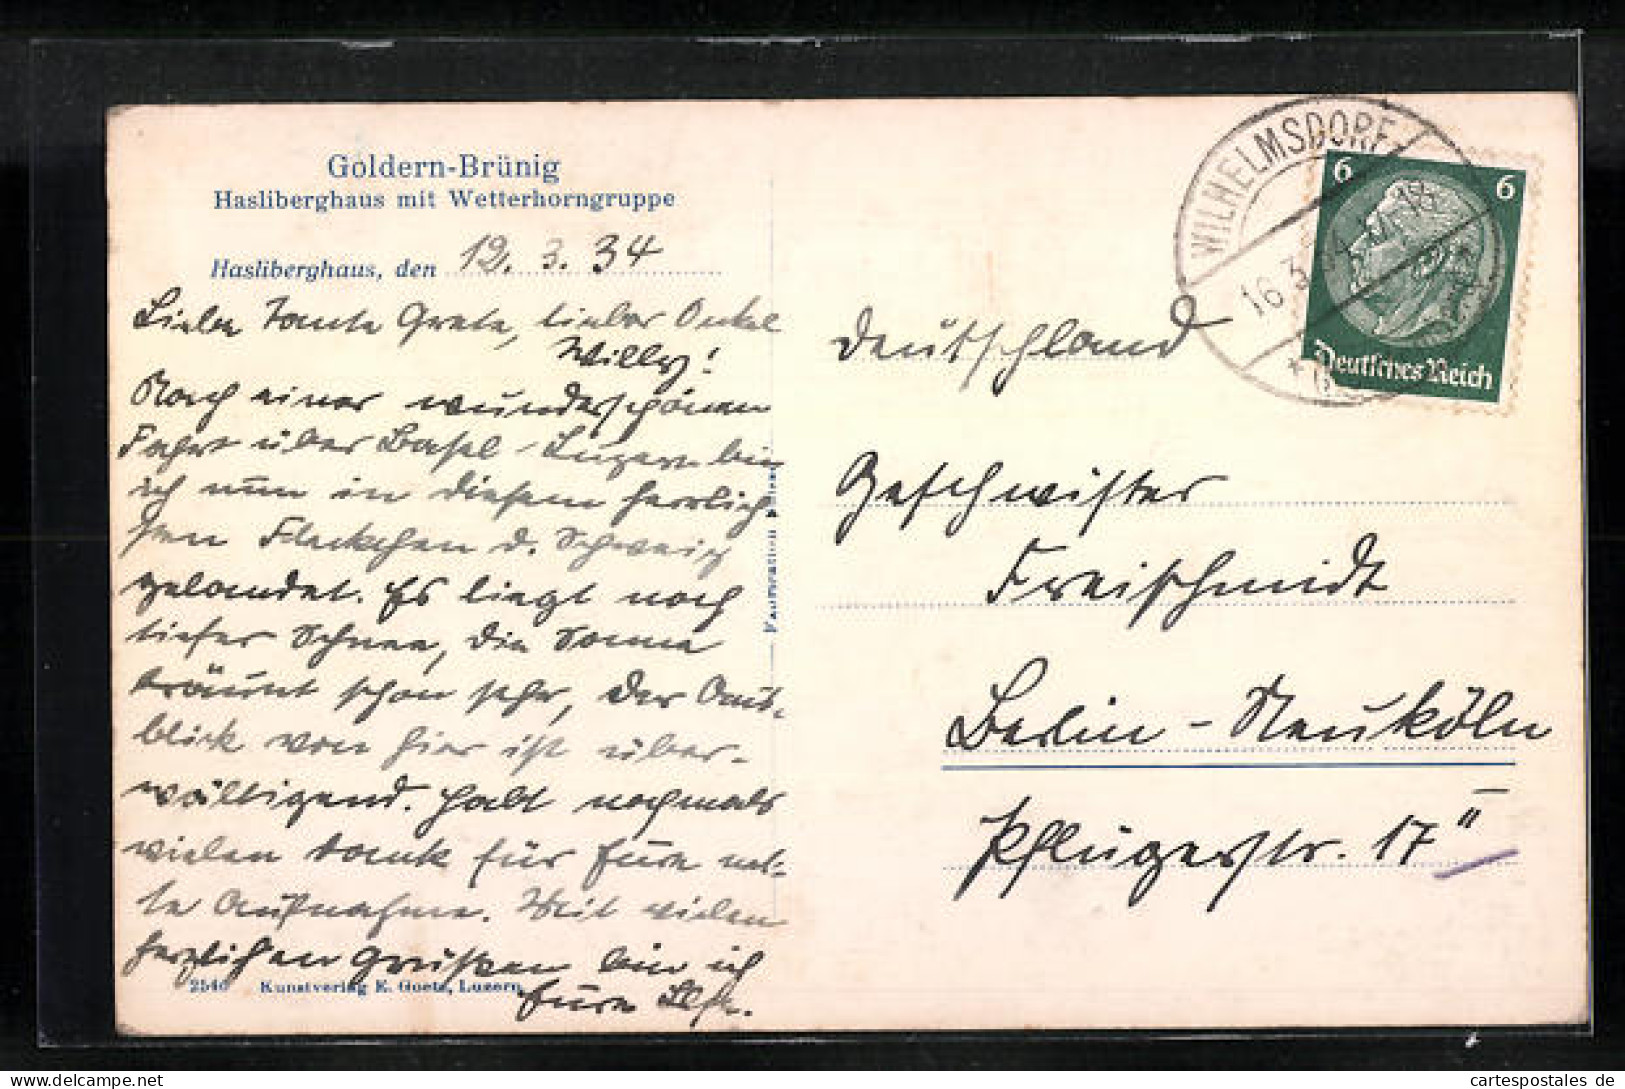 Goldern-Brünig
Hasliberghaus mit Wetterhorngruppe
Hasliberghaus, den 12. 3. 34
Liebe Tante Grete, lieber Onkel
Willy!
Nach einer wunderschönen
Fahrt über Basel-Luzern bin
ich nun in diesem herrlich
sten Fleckchen d. Schweiz
gelandet. Es liegt noch
tiefer Schnee, die Sonne
bräunt schon sehr, der Aus-
blick von hier ist über-
wältigend. Habt nochmals
vielen Dank für Eure net-
te Aufnahme. Mit vielen
herzlichen Grüßen bin ich
Eure Ilse.
2540 Kunstverlag E. Goetz, Luzern
WILHELMSDORF
16.3.
6 6
Deutsches Reich
Deutschland
Geschwister
Freischmidt
Berlin-Neukölln
Pflügerstr. 17 II
cartespostales de